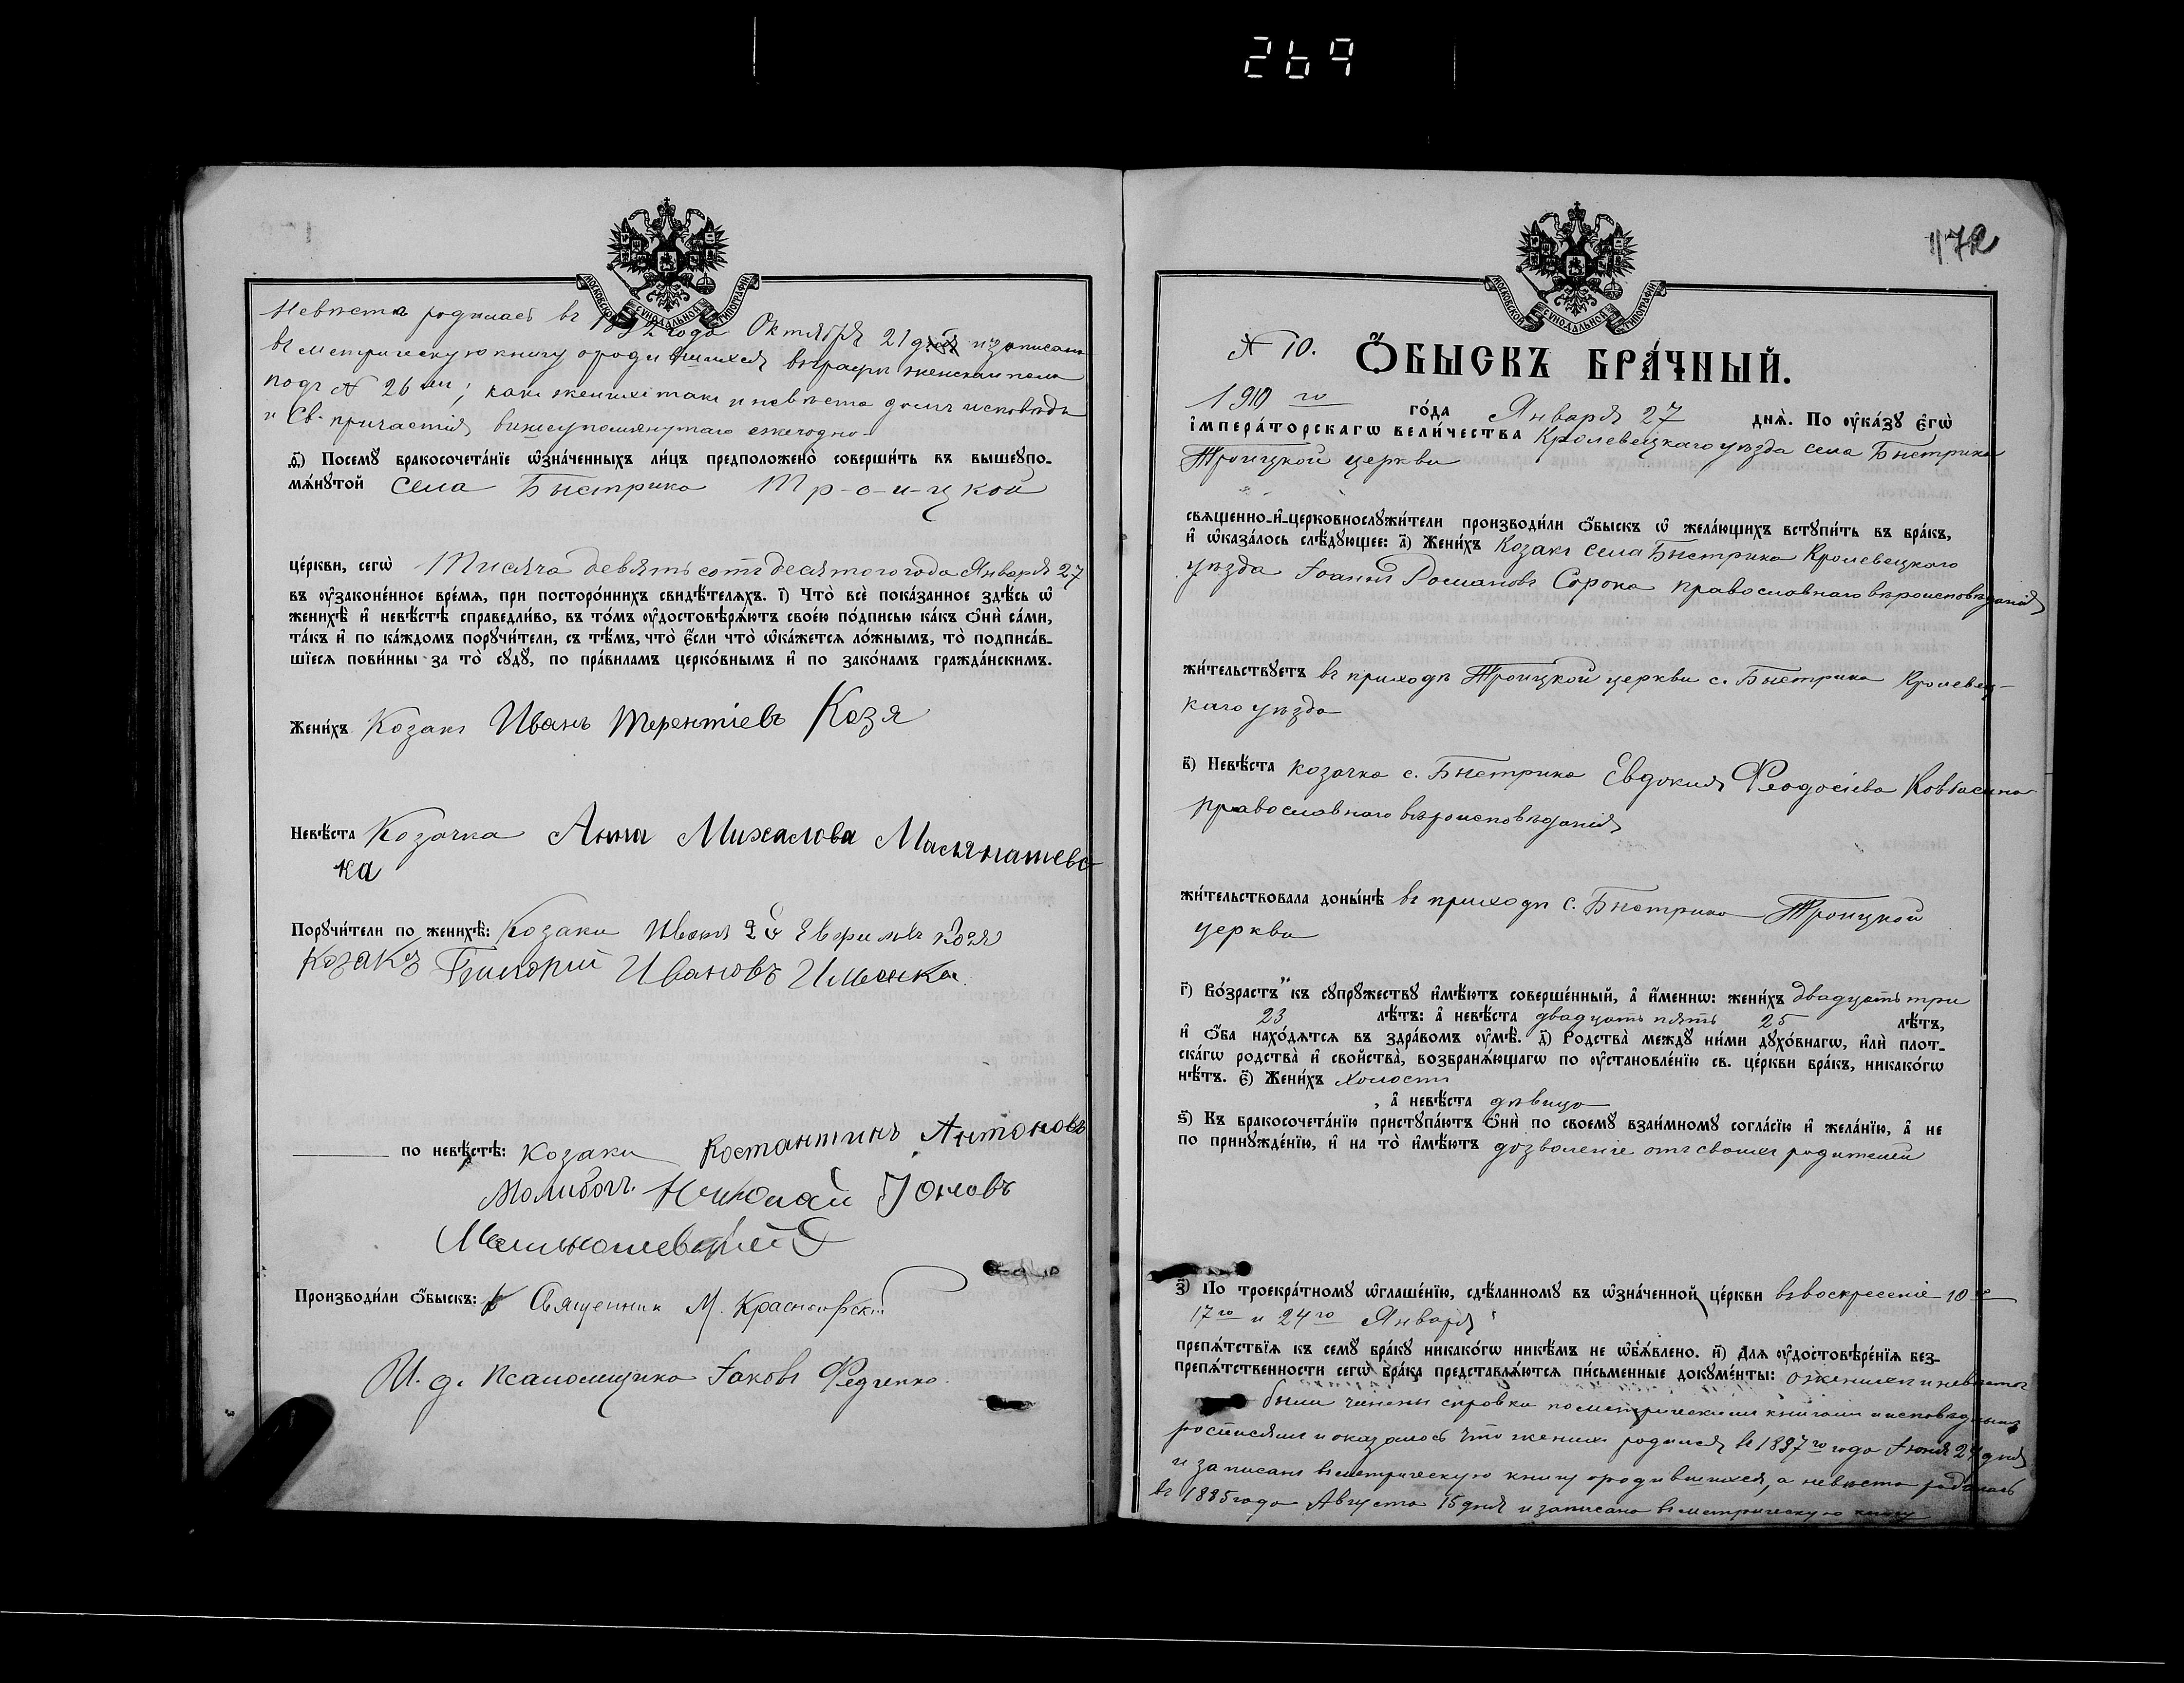 269
МОСКОВСКОЙ СѴНОДАЛЬНОЙ ТИПОГРАФІИ
Невѣста родилась въ 1892 года Октября 21 дня и записана
въ метрическую книгу о родившихся въ графѣ женскаго пола
подъ № 26 им; какъ женихъ такъ и невѣста долгъ исповѣди
и Св. причастія вышеупомянутаго ежегодно.
ѳ҃) Посемꙋ̀ бракосочета́нїе ѡ҆зна́ченныхъ ли́цъ предположено̀ соверши́ть въ вышеꙋпо-
мѧ́нꙋтой села Быстрика Тр-о-и-цкой
це́ркви, сегѡ̀ Тисяча девятьсотъ десятого года Января 27
въ ꙋ҆зако́ненное вре́мѧ, при посторо́ннихъ свидѣ́телѧхъ. і҃) Что̀ всѐ пока́занное здѣ́сь ѡ҆
женихѣ̀ и҆ невѣ́стѣ справедли́во, въ то́мъ ꙋ҆достовѣрѧ́ютъ свое́ю по́дписью ка́къ ѻ҆нѝ са́ми,
та́къ и҆ по ка́ждомъ порꙋчи́тели, съ тѣ́мъ, что̀ є҆́сли что̀ ѡ҆ка́жетсѧ ло́жнымъ, то̀ подписа́в-
шїесѧ пови́нны за то̀ сꙋдꙋ̀, по пра́виламъ церко́внымъ и҆ по зако́намъ гражда́нскимъ.
Жени́хъ Козакъ Иванъ Терентіевъ Козя
Невѣ́ста Козачка Анна Михалова Масянашевс-
ка
Порꙋчи́тели по женихѣ̀: Козаки Иванъ Евфимьвъ Козя
Козакъ Григорий Ивановъ Ильенка.
по невѣ́стѣ: Козаки Костантинъ Антоновъ
Молибогъ. Николай Іоновъ
Производи́ли ѻ҆́быскъ: Священник М. Красногорскій
И. д. псаломщика Іаковъ Федченко.
172
МОСКОВСКОЙ СѴНОДАЛЬНОЙ ТИПОГРАФІИ
№ 10. Ѻ҆́БЫСКЪ БРА́ЧНЫЙ.
1910 го го́да Января 27 днѧ̀. По ꙋ҆ка́зꙋ є҆гѡ̀
і҆мпера́торскагѡ вели́чества Кролевецкаго уѣзда села Быстрика
Троицкой церкви
свѧщенно-и҆-церковнослꙋжи́тели производи́ли ѻ҆́быскъ ѡ҆ жела́ющихъ встꙋпи́ть въ бра́къ,
и҆ ѡ҆каза́лось слѣ́дꙋющее: а҃) Жени́хъ Козакъ села Быстрика Кролевецкого
уѣзда Іоаннъ Романовъ Сорока православнаго вѣроисповѣданія
жи́тельствꙋетъ въ приходѣ Троицкой церкви с. Быстрика Кролевец-
каго уѣзда
в҃) Невѣ́ста козачка с. Быстрика Евдокія Феодосіева Ковбасина
православнаго вѣроисповѣданія
жи́тельствовала доны́нѣ въ приходѣ с. Быстрика Троицкой
церкви
г҃) Во́зрастъ къ сꙋпрꙋ́жествꙋ и҆мѣ́ютъ соверше́нный, а҆ и҆́меннѡ: жени́хъ двадцать три
23 лѣ́тъ: а҆ невѣ́ста двадцать пять 25 лѣ́тъ,
и҆ ѻ҆́ба нахо́дѧтсѧ въ здра́вомъ ꙋ҆мѣ̀. д҃) Родства̀ междꙋ̀ ни́ми дꙋхо́внагѡ, и҆лѝ плот-
ска́гѡ родства̀ и҆ сво́йства̀, возбранѧ́ющагѡ по ꙋ҆становле́нїю св. це́ркви бра́къ, никако́гѡ
нѣ́тъ. є҃) Жени́хъ холостъ
, а҆ невѣ́ста дѣвица
ѕ҃) Къ бракосочета́нїю пристꙋпа́ютъ ѻ҆нѝ по своемꙋ̀ взаи́мномꙋ согла́сїю и҆ жела́нїю, а҆ не
по принꙋжде́нїю, и҆ на то̀ и҆мѣ́ютъ дозволеніе отъ своихъ родителей
з҃) По троекра́тномꙋ ѡ҆глаше́нїю, сдѣ́ланномꙋ въ ѡ҆зна́ченной це́ркви въ воскресеніе 10 го
17 го и 24 го Января
препѧ́тствїѧ къ семꙋ̀ бра́кꙋ никако́гѡ никѣ́мъ не ѡ҆б̾ѧ́влено. и҃) Длѧ ꙋ҆достовѣре́нїѧ без-
препѧ́тственности сегѡ̀ бра́ка представлѧ́ютсѧ пи́сьменные докꙋме́нты: о женихѣ и невѣстѣ
были чинены справки по метрическимъ книгамъ и исповѣднымъ
росписямъ и оказалось что женихъ родился въ 1887 го года Іюня 24 дня
и записанъ въ метрическую книгу о родившихся, а невѣста родилась
въ 1885 года Августа 15 дня и записана въ метрическую книгу